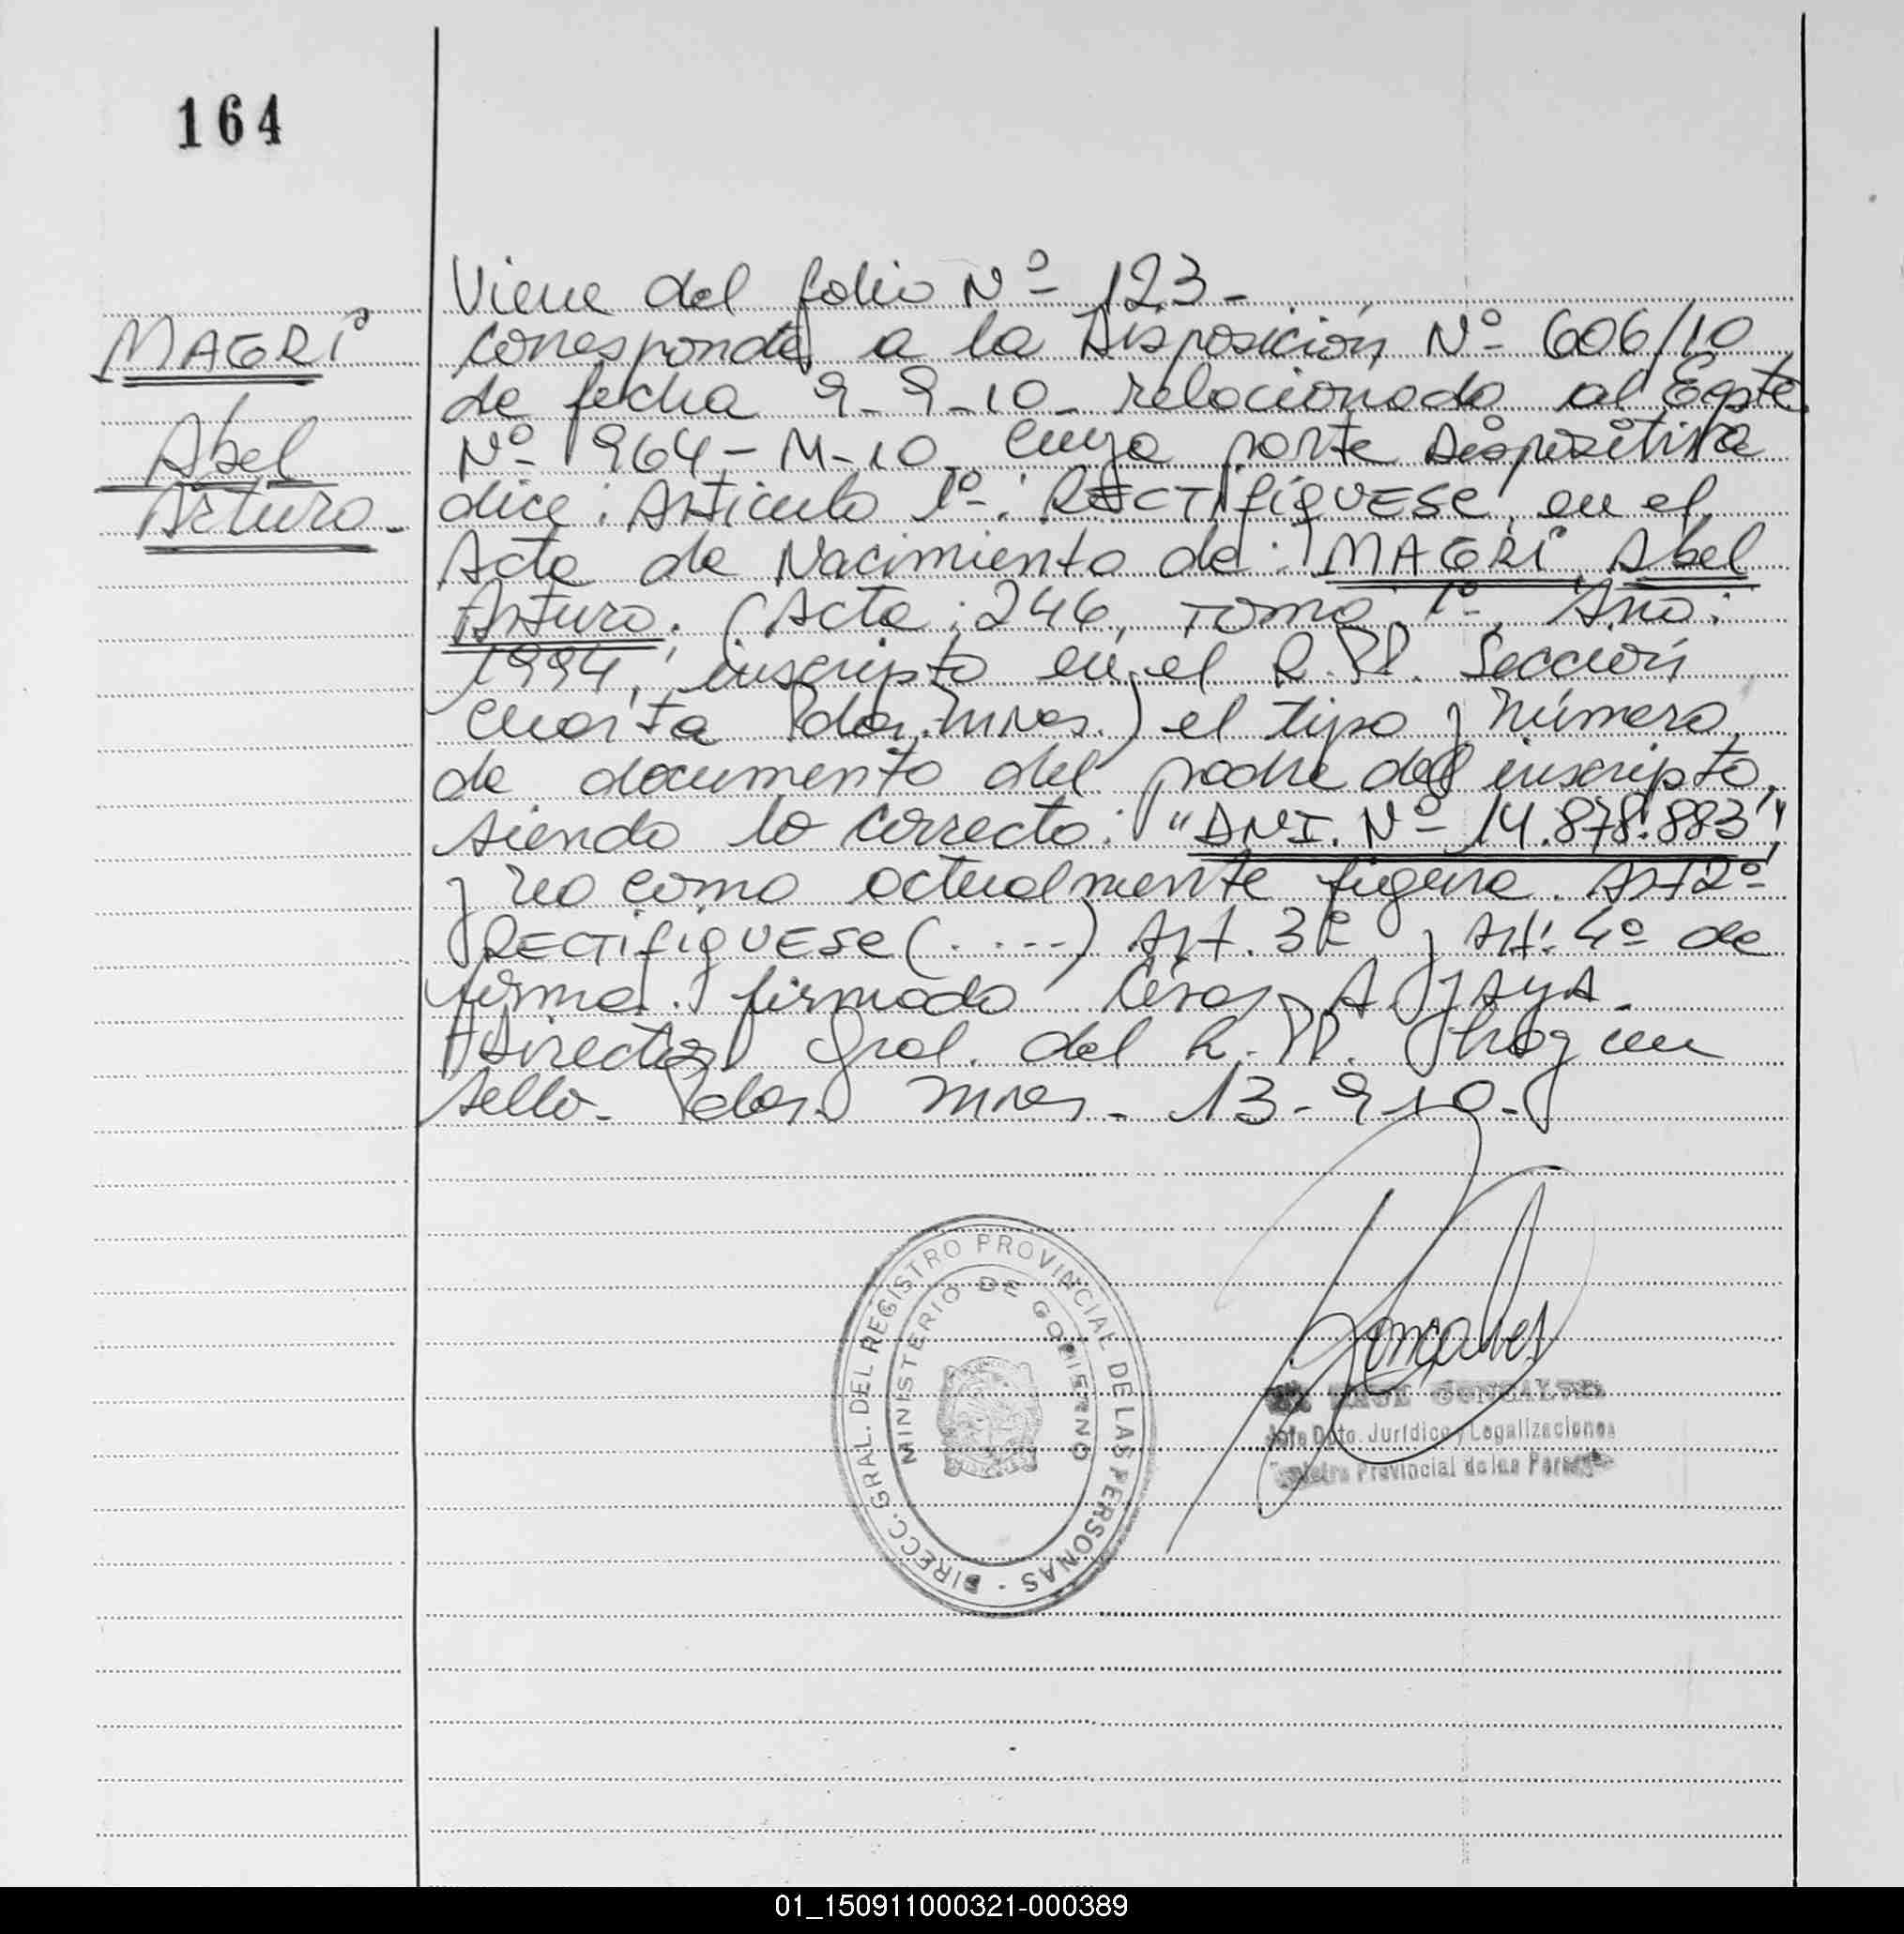 164
MAGRÍ
Abel
Arturo.-
Viene del folio Nº 123.-
corresponde a la Disposición Nº 606/10
de fecha 9-9-10- relacionado al Expte.
Nº 964-M-10 cuya parte Dispositiva
dice: Articulo 1º: RECTIFÍQUESE, en el
Acta de Nacimiento de: MAGRÍ, Abel
Arturo. (Acta: 246, Tomo: 1º, Año:
1994, inscripto en el R.PP. Sección
Cuarta Pdas. Mnes.) el tipo y número
de documento del padre del inscripto,
siendo lo correcto: "DNI. Nº 14.878.883",
y no como actualmente figura. Art 2º
RECTIFIQUESE (.....) Art. 3º y Art. 4º de
forma. firmado César A. JAYA.
Director Gral. del R.PP. Hay un
sello.- Pdas. Mnes.- 13-9-10.-
DIRECC. GRAL. DEL REGISTRO PROVINCIAL DE LAS PERSONAS -
MINISTERIO DE GOBIERNO
Gonçalves
GONCALVES
Jefe Dpto. Jurídico y Legalizaciones
Provincial de las
01_150911000321-000389